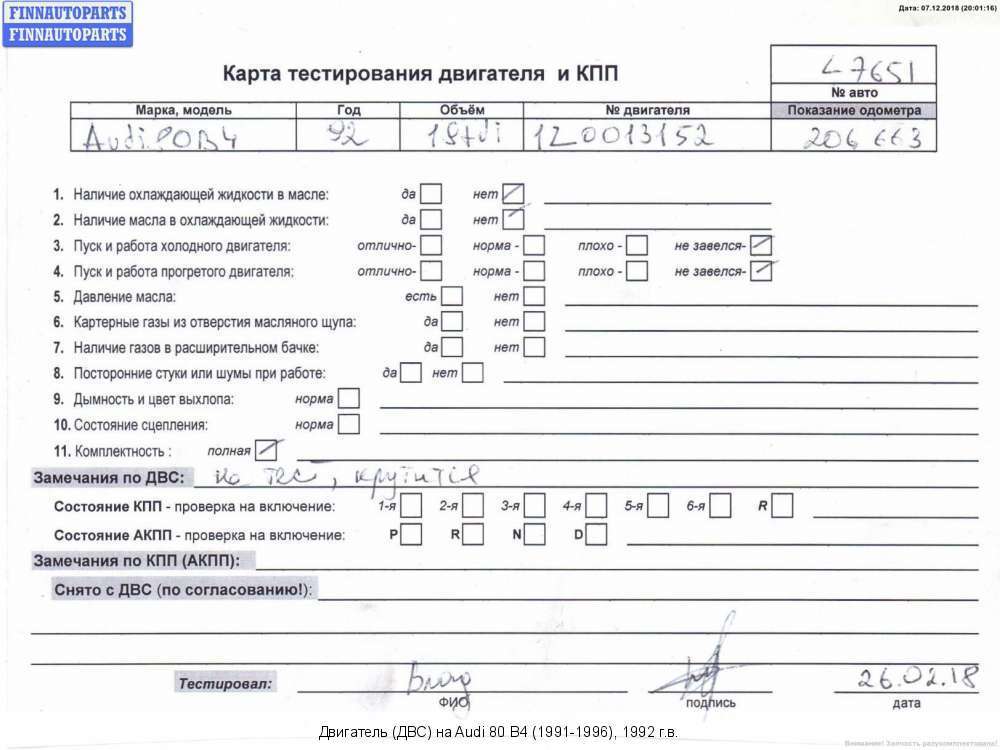 FINNAUTOPARTS
FINNAUTOPARTS
Дата: 07.12.2018 (20:01:16)
Карта тестирования двигателя и КПП
47651
№ авто
Марка, модель Год Объём № двигателя Показание одометра
Audi 80B4 92 1.9tdi 1Z0013152 206 663
1. Наличие охлаждающей жидкости в масле: да нет
2. Наличие масла в охлаждающей жидкости: да нет
3. Пуск и работа холодного двигателя: отлично- норма - плохо - не завелся-
4. Пуск и работа прогретого двигателя: отлично- норма - плохо - не завелся-
5. Давление масла: есть нет
6. Картерные газы из отверстия масляного щупа: да нет
7. Наличие газов в расширительном бачке: да нет
8. Посторонние стуки или шумы при работе: да нет
9. Дымность и цвет выхлопа: норма
10. Состояние сцепления: норма
11. Комплектность : полная
Замечания по ДВС: на тес, крутится
Состояние КПП - проверка на включение: 1-я 2-я 3-я 4-я 5-я 6-я R
Состояние АКПП - проверка на включение: P R N D
Замечания по КПП (АКПП):
Снято с ДВС (по согласованию!):
Тестировал: Влад 26.02.18
ФИО подпись дата
Двигатель (ДВС) на Audi 80 B4 (1991-1996), 1992 г.в.
Внимание! Запчасть разукомплектована!